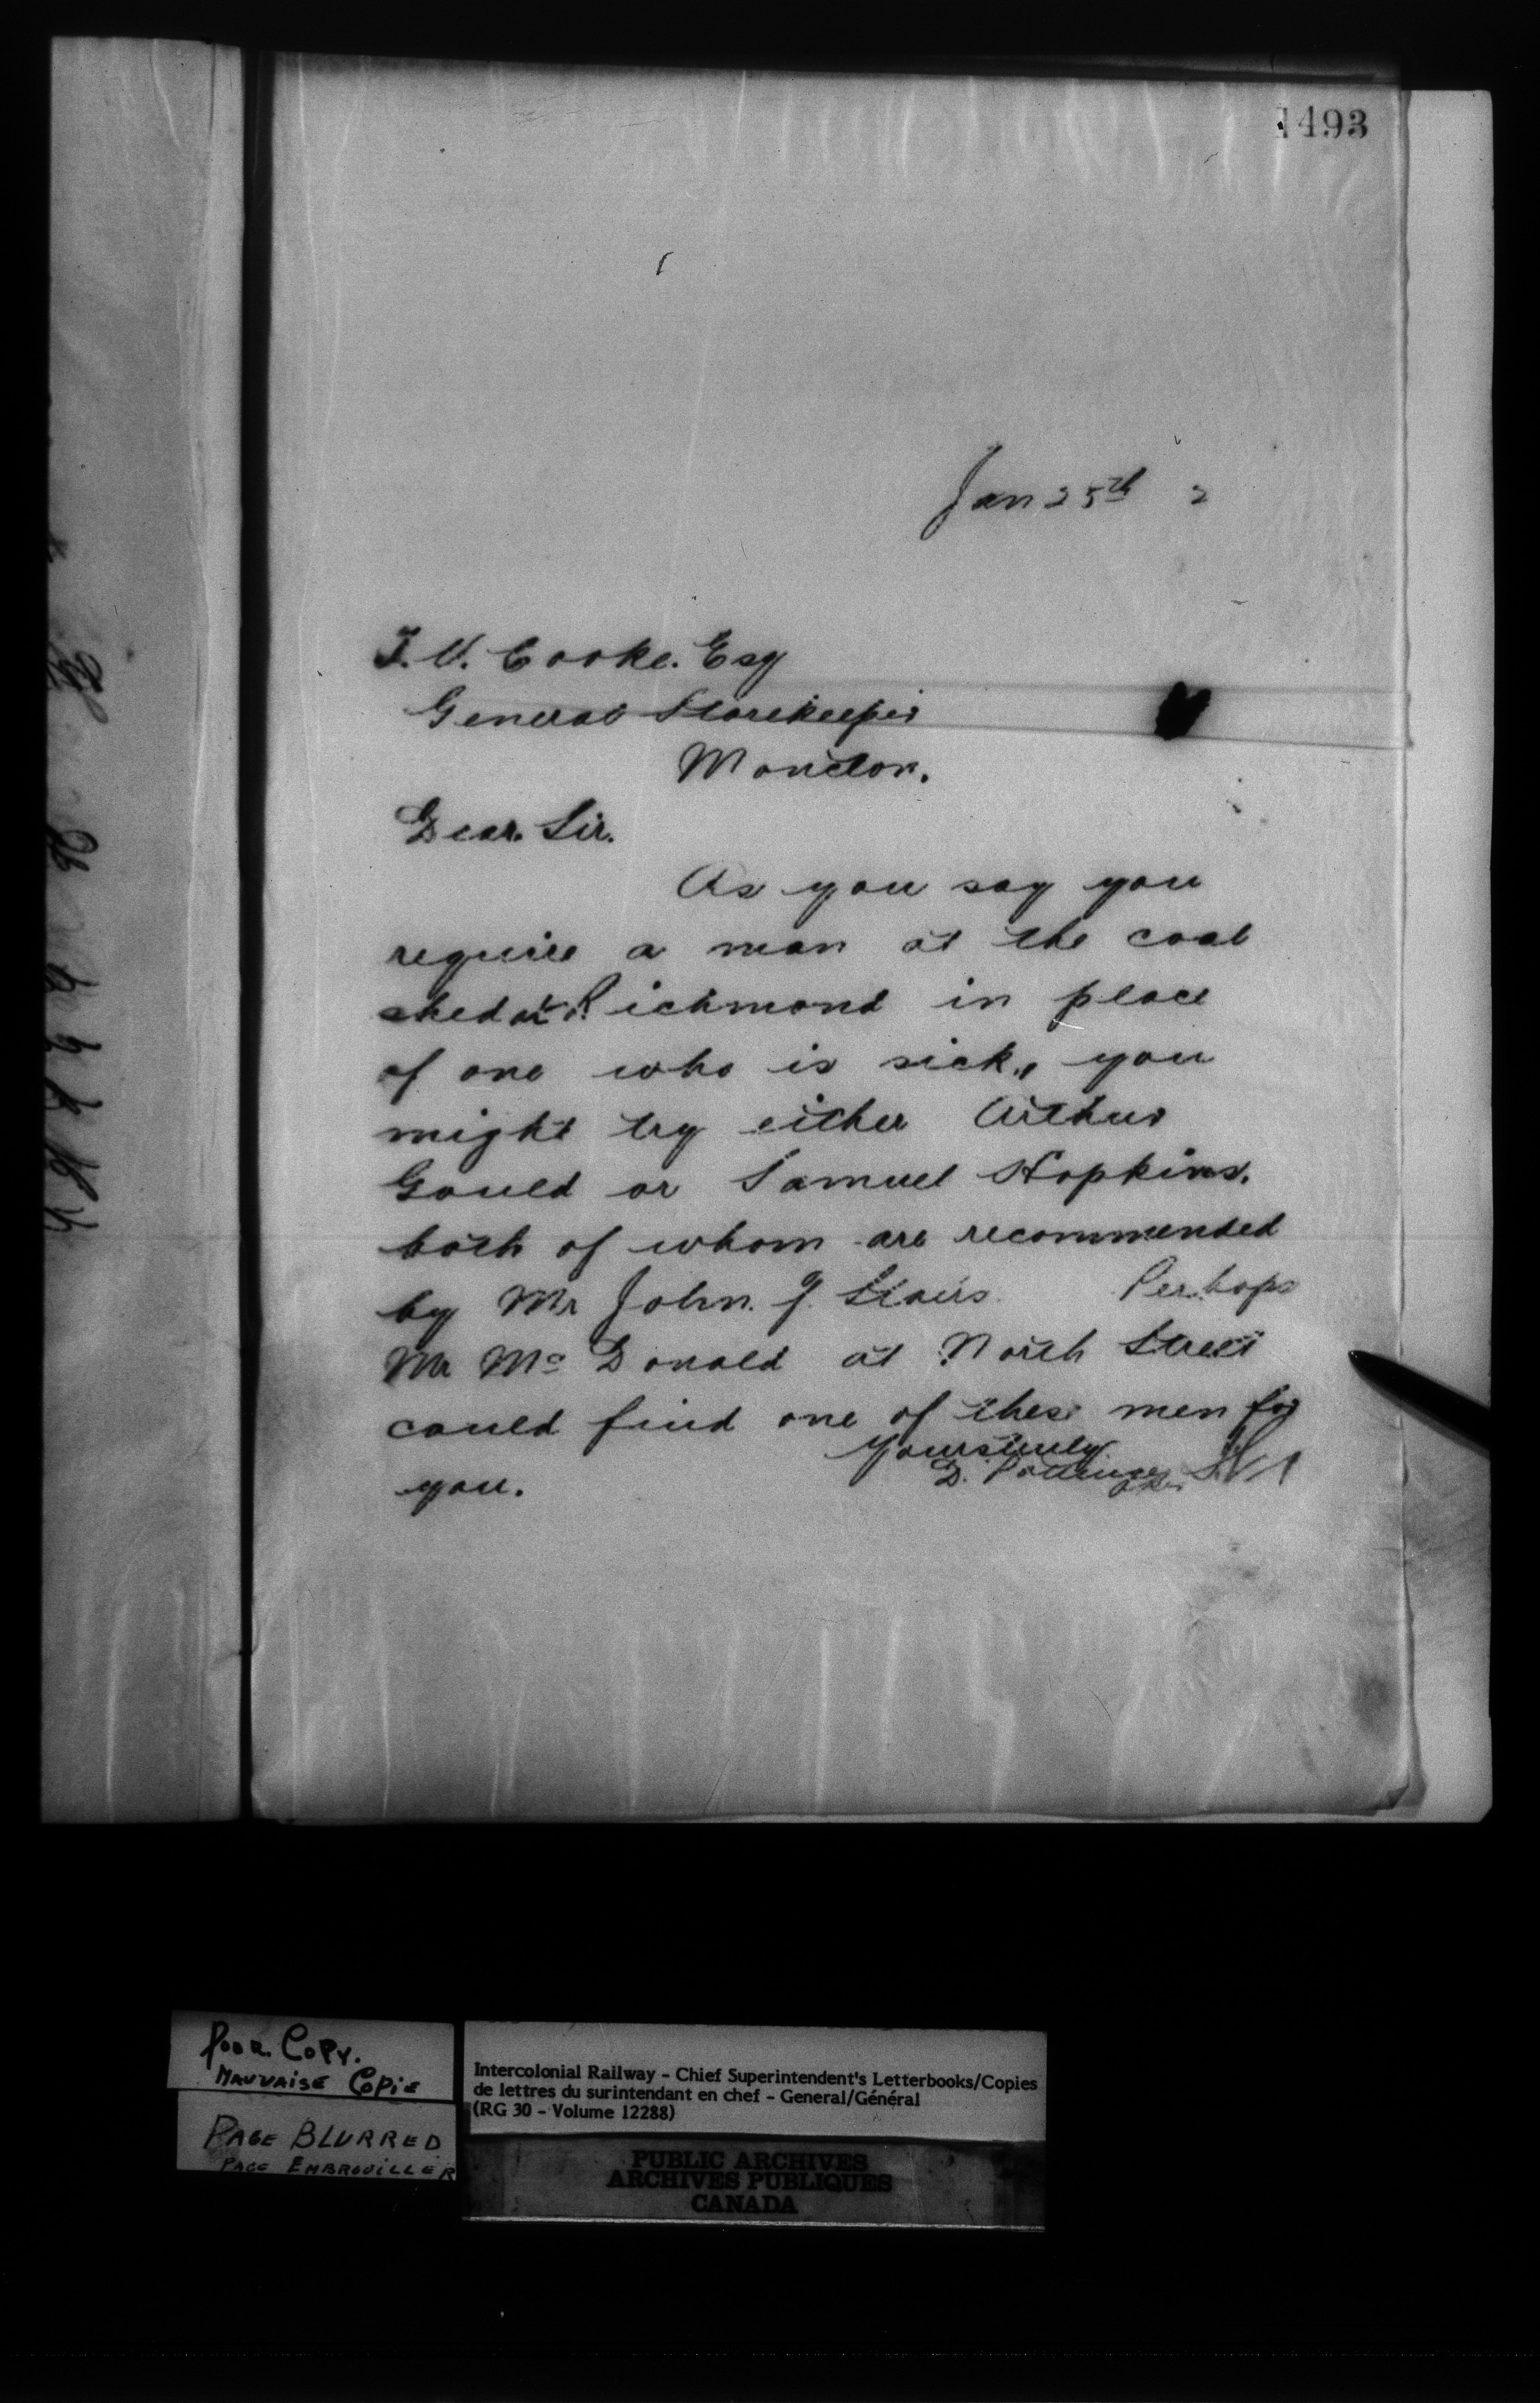 1493
Jan 25th 2
T. V. Cooke. Esq
General Storekeeper
Moncton.
Dear Sir.
As you say you
require a man at the coal
shed at Richmond in place
of one who is sick, you
might try either Arthur
Gould or Samuel Hopkins.
both of whom are recommended
by Mr John. J. Stairs. Perhaps
Mr McDonald at North Street
could find one of these men for
you.
Yours truly
D. Pottinger
Poor Copy.
Mauvaise Copie
Page Blurred
Page Embrouiller
Intercolonial Railway - Chief Superintendent's Letterbooks/Copies
de lettres du surintendant en chef - General/Général
(RG 30 - Volume 12288)
PUBLIC ARCHIVES
ARCHIVES PUBLIQUES
CANADA